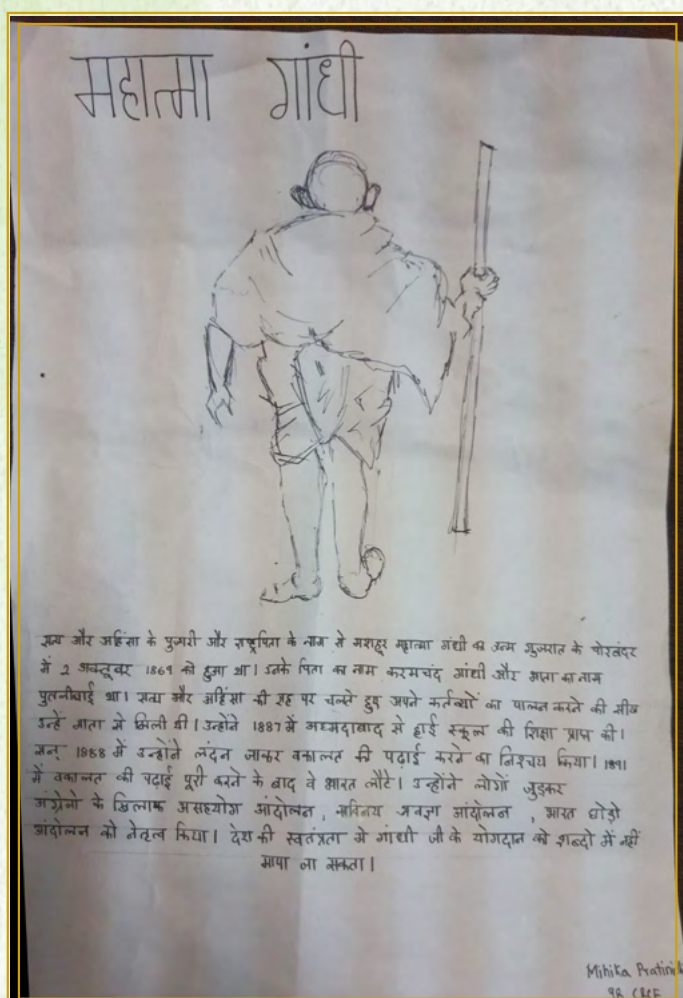 महात्मा गांधी
सत्य और अहिंसा के पुजारी और राष्ट्रपिता के नाम से मशहूर महात्मा गांधी का जन्म गुजरात के पोरबंदर
में 2 अक्तूबर 1869 को हुआ था। उनके पिता का नाम करमचंद गांधी और माता का नाम
पुतलीबाई था। सत्य और अहिंसा की राह पर चलते हुए अपने कर्तव्यों का पालन करने की सीख
उन्हें माता से मिली थी। उन्होंने 1887 में अहमदाबाद से हाई स्कूल की शिक्षा प्राप्त की।
सन् 1888 में उन्होंने लंदन जाकर वकालत की पढ़ाई करने का निश्चय किया। 1891
में वकालत की पढ़ाई पूरी करने के बाद वे भारत लौटे। उन्होंने लोगों जुड़कर
अंग्रेजो के खिलाफ असहयोग आंदोलन, सविनय अवज्ञा आंदोलन, भारत छोड़ो
आंदोलन को नेतृत्व किया। देश की स्वतंत्रता में गांधी जी के योगदान को शब्दो में नहीं
मापा जा सकता।
Mihika